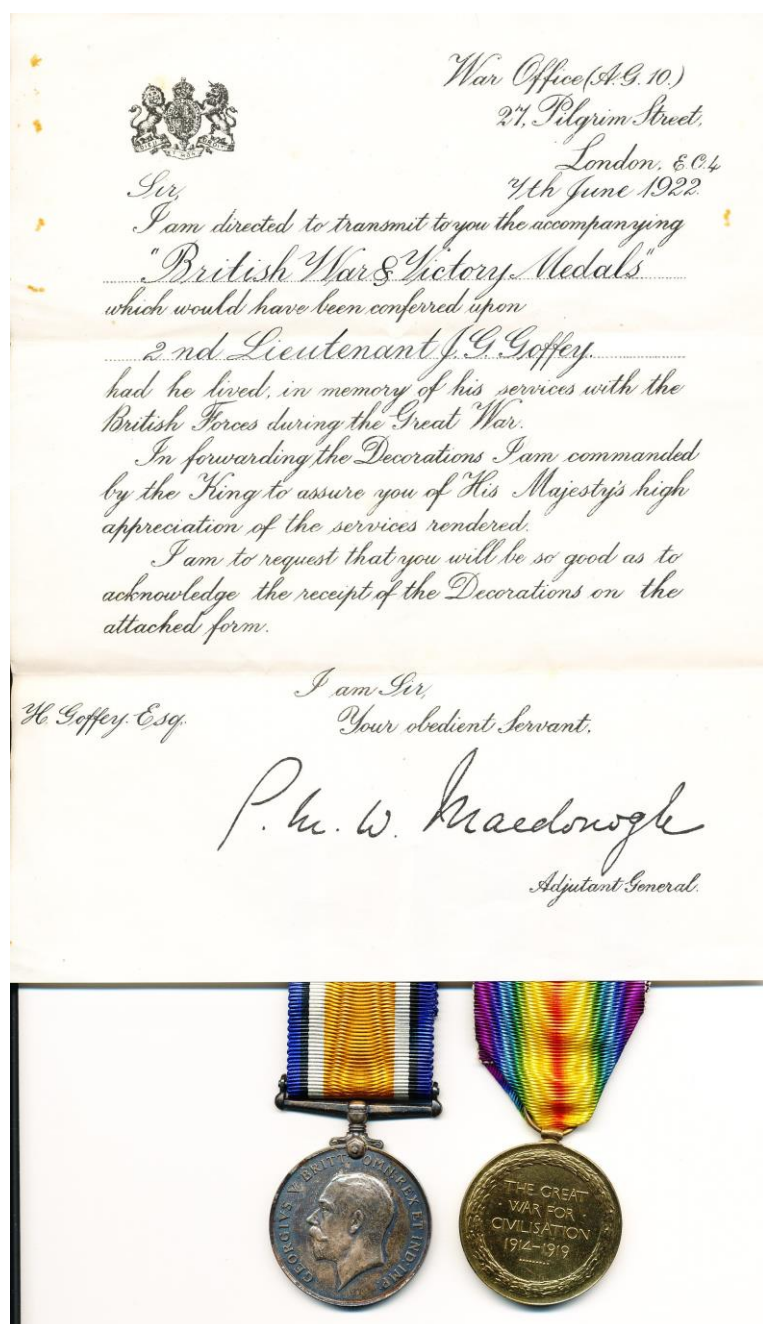 War Office (A.G. 10.)
27, Pilgrim Street,
London, E.C.4
7th June 1922.
Sir,
I am directed to transmit to you the accompanying
"British War & Victory Medals"
which would have been conferred upon
2nd Lieutenant J. G. Goffey.
had he lived, in memory of his services with the
British Forces during the Great War.
In forwarding the Decorations I am commanded
by the King to assure you of His Majesty's high
appreciation of the services rendered.
I am to request that you will be so good as to
acknowledge the receipt of the Decorations on the
attached form.
I am Sir,
Your obedient Servant,
H. Goffey. Esq.
G. M. W. Macdonogh
Adjutant General.
GEORGIVS V BRITT: OMN: REX ET IND: IMP:
THE GREAT
WAR FOR
CIVILISATION
1914-1919